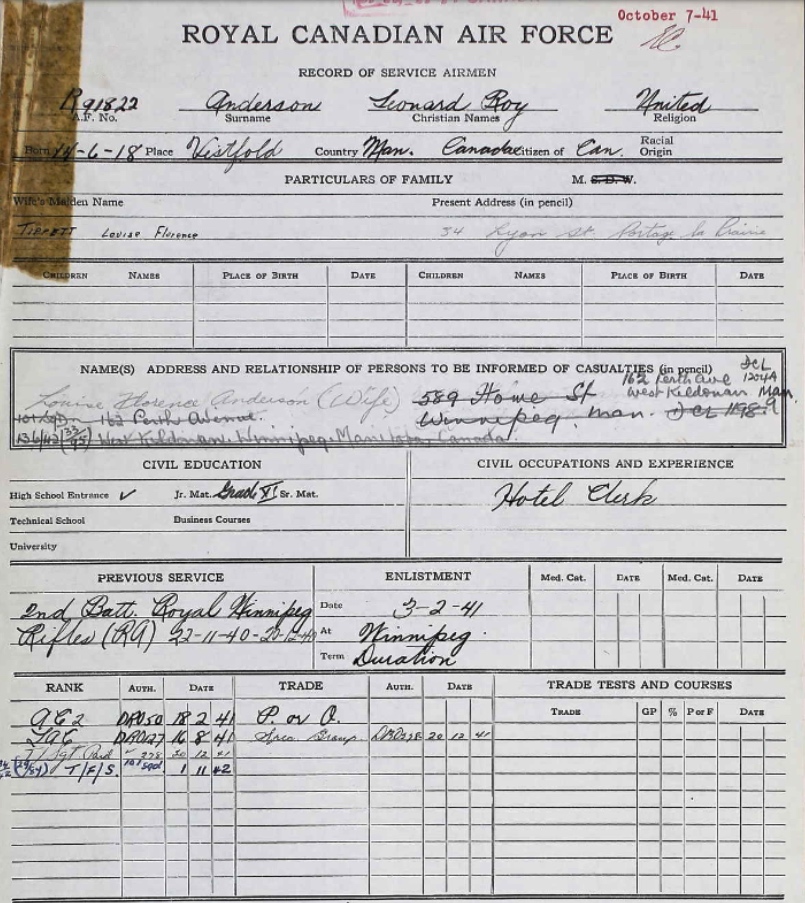 October 7-41
ROYAL CANADIAN AIR FORCE
RECORD OF SERVICE AIRMEN
R91822 Anderson Leonard Roy United
A.F. No. Surname Christian Names Religion
Born 14-6-18 Place Vistfold Country Man. Canada Citizen of Can. Racial Origin
PARTICULARS OF FAMILY M. S. D. W.
Wife's Maiden Name Present Address (in pencil)
TIPPETT Louise Florence 34 Lyon St. Portage la Prairie
CHILDREN NAMES PLACE OF BIRTH DATE CHILDREN NAMES PLACE OF BIRTH DATE
NAME(S) ADDRESS AND RELATIONSHIP OF PERSONS TO BE INFORMED OF CASUALTIES (in pencil) DCL
162 Perth Ave 1204A
Louise Florence Anderson (Wife) 589 Home St West Kildonan Man.
162 Perth Avenue. Winnipeg Man. DCL 1198
West Kildonan, Winnipeg, Manitoba, Canada.
CIVIL EDUCATION CIVIL OCCUPATIONS AND EXPERIENCE
High School Entrance ✓ Jr. Mat. Grade XI Sr. Mat. Hotel Clerk
Technical School Business Courses
University
PREVIOUS SERVICE ENLISTMENT Med. Cat. DATE Med. Cat. DATE
2nd Batt. Royal Winnipeg Date 3-2-41
Rifles (RA) 22-11-40- At Winnipeg.
Term Duration
RANK AUTH. DATE TRADE AUTH. DATE TRADE TESTS AND COURSES
TRADE GP % P or F DATE
AC2 DRO50 18 2 41 P. or O.
LAC DRO127 16 8 41 Spec. Group DRO298 20 12 41
T/Sgt Paid 298 20 12 41
T/F/S. 101 Sqd 1 11 42